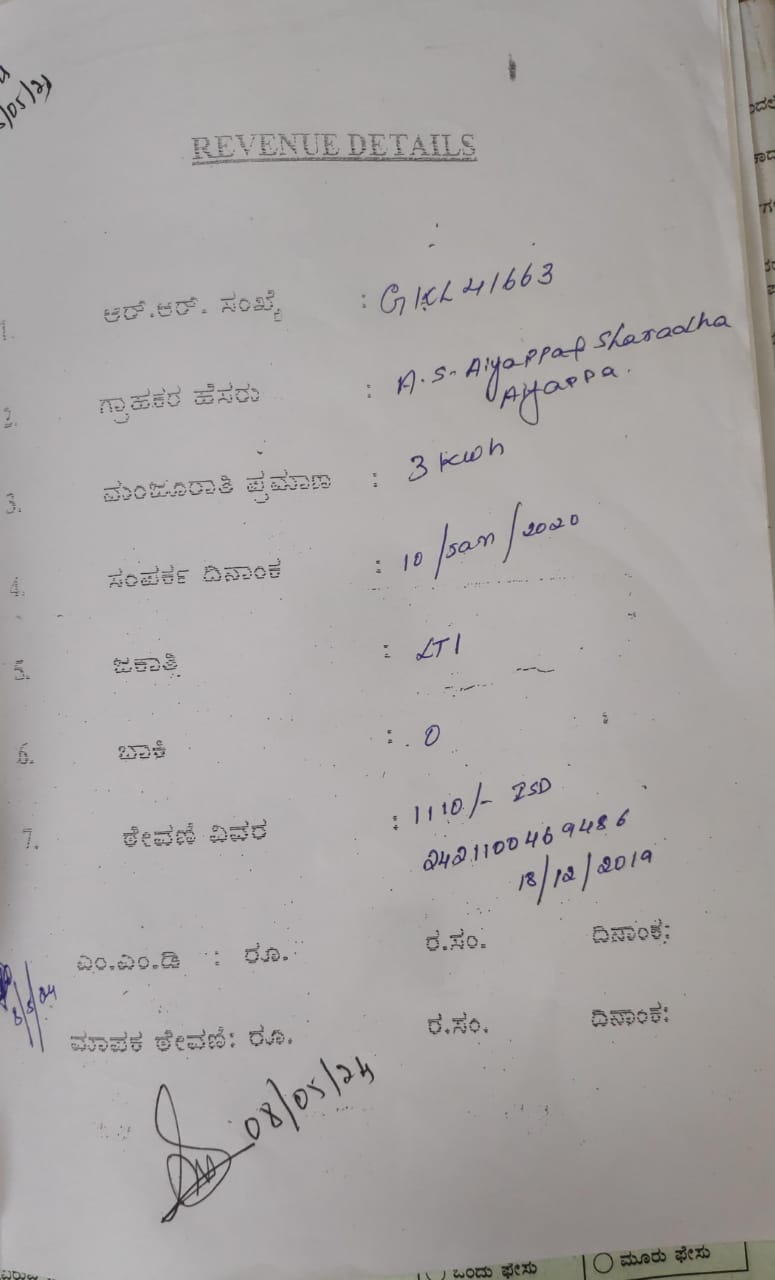 /05/24
REVENUE DETAILS
1. ಆರ್.ಆರ್. ಸಂಖ್ಯೆ : GKL 41663
2. ಗ್ರಾಹಕರ ಹೆಸರು : A.S. Aiyappa & Sharadha
Aiyappa.
3. ಮಂಜೂರಾತಿ ಪ್ರಮಾಣ : 3 kwh
4. ಸಂಪರ್ಕ ದಿನಾಂಕ : 10/Jan/2020
5. ಜಕಾತಿ : LT1
6. ಬಾಕಿ : 0
7. ಠೇವಣಿ ವಿವರ : 1110/- ISD
2421100469486
18/12/2019
ಎಂ.ಎಂ.ಡಿ : ರೂ. ರ.ಸಂ. ದಿನಾಂಕ:
8/5/24
ಮಾಪಕ ಠೇವಣಿ: ರೂ. ರ.ಸಂ. ದಿನಾಂಕ:
08/05/24
ಒಂದು ಫೇಸು ಮೂರು ಫೇಸು